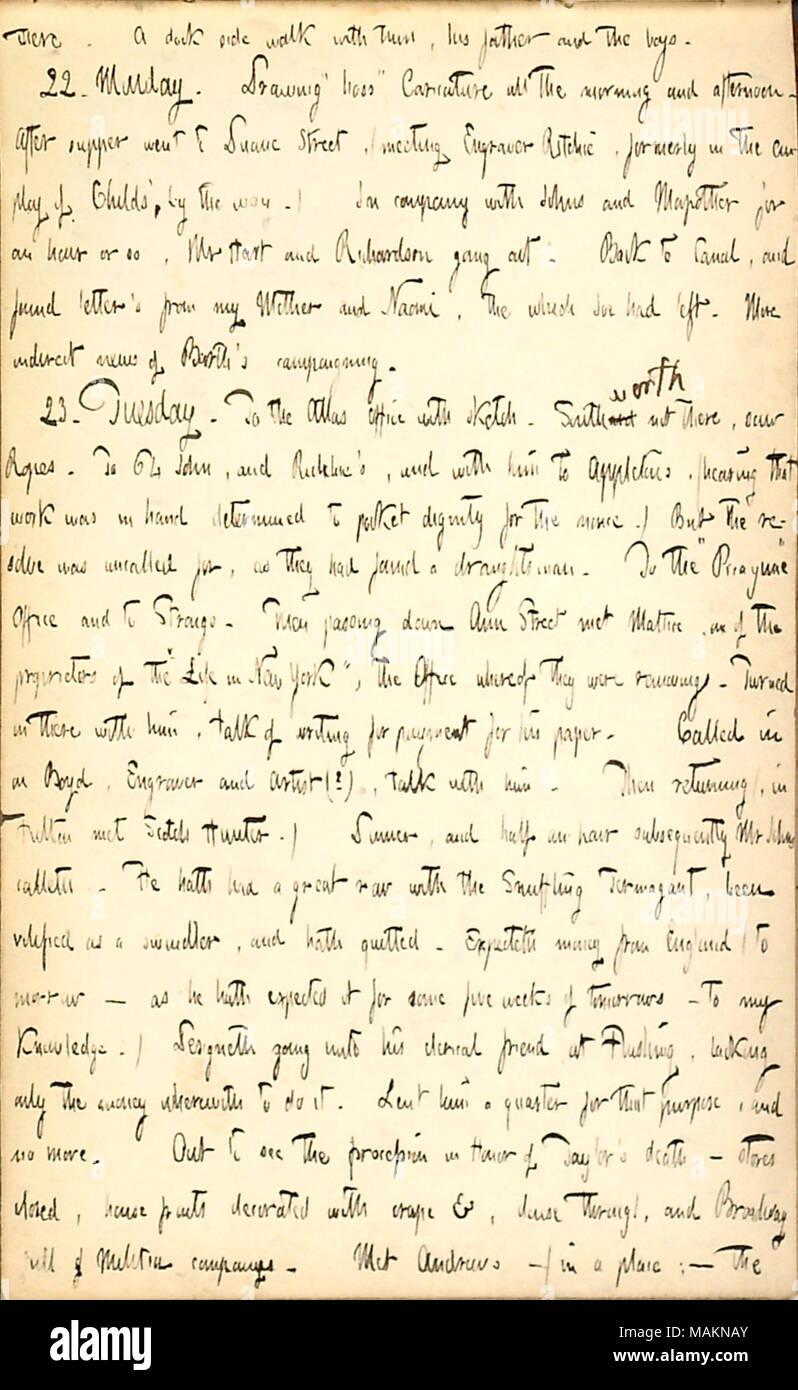 there. A dock side walk with them, his father and the boys.
22. Monday. Drawing "hoss" Caricature all the morning and afternoon.
After supper went to Duane Street, (meeting Engraver Ritchie, formerly in the em-
ploy of Childs', by the way.) In company with Johns and Mapother for
an hour or so, Mr Hart and Richardson going out. Back to Canal, and
found letter's from my Mother and Naomi, the which Joe had left. More
indirect news of Barth's campaigning.
23. Tuesday. To the Atlas office with sketch. Southworth not there, saw
Ropes. To 64 John, and Richie's, and with him to Appletons, (hearing that
work was in hand determined to pocket dignity for the nonce.) But the re-
solve was uncalled for, as they had found a draughtsman. To the "Picayune"
Office and to Strongs. Then passing down Ann Street met Mattice, one of the
proprietors of the "Life in New York", the Office whereof they were removing. Turned
in there with him, talk of writing for payment for his paper. Called in
on Boyd, Engraver and Artist (?), talk with him. Then returning, (in
Fulton met Scotch Hunter.) Dinner, and half an hour subsequently Mr Johns
calleth. He hath had a great row with the Snuffling Termagant, been
vilified as a swindler, and hath quitted. Expecteth money from England (to
morrow — as he hath expected it for some five weeks of tomorrows — to my
Knowledge.) Designeth going unto his clerical friend at Flushing, lacking
only the money wherewith to do it. Lent him a quarter for that purpose, and
no more. Out to see the procession in Honor of Taylor's death — stores
closed, house fronts decorated with crape &, dense throngs, and Broadway
full of Militia companys. Met Andrews — (in a place; — the
alamy
Image ID: MAKNAY
www.alamy.com